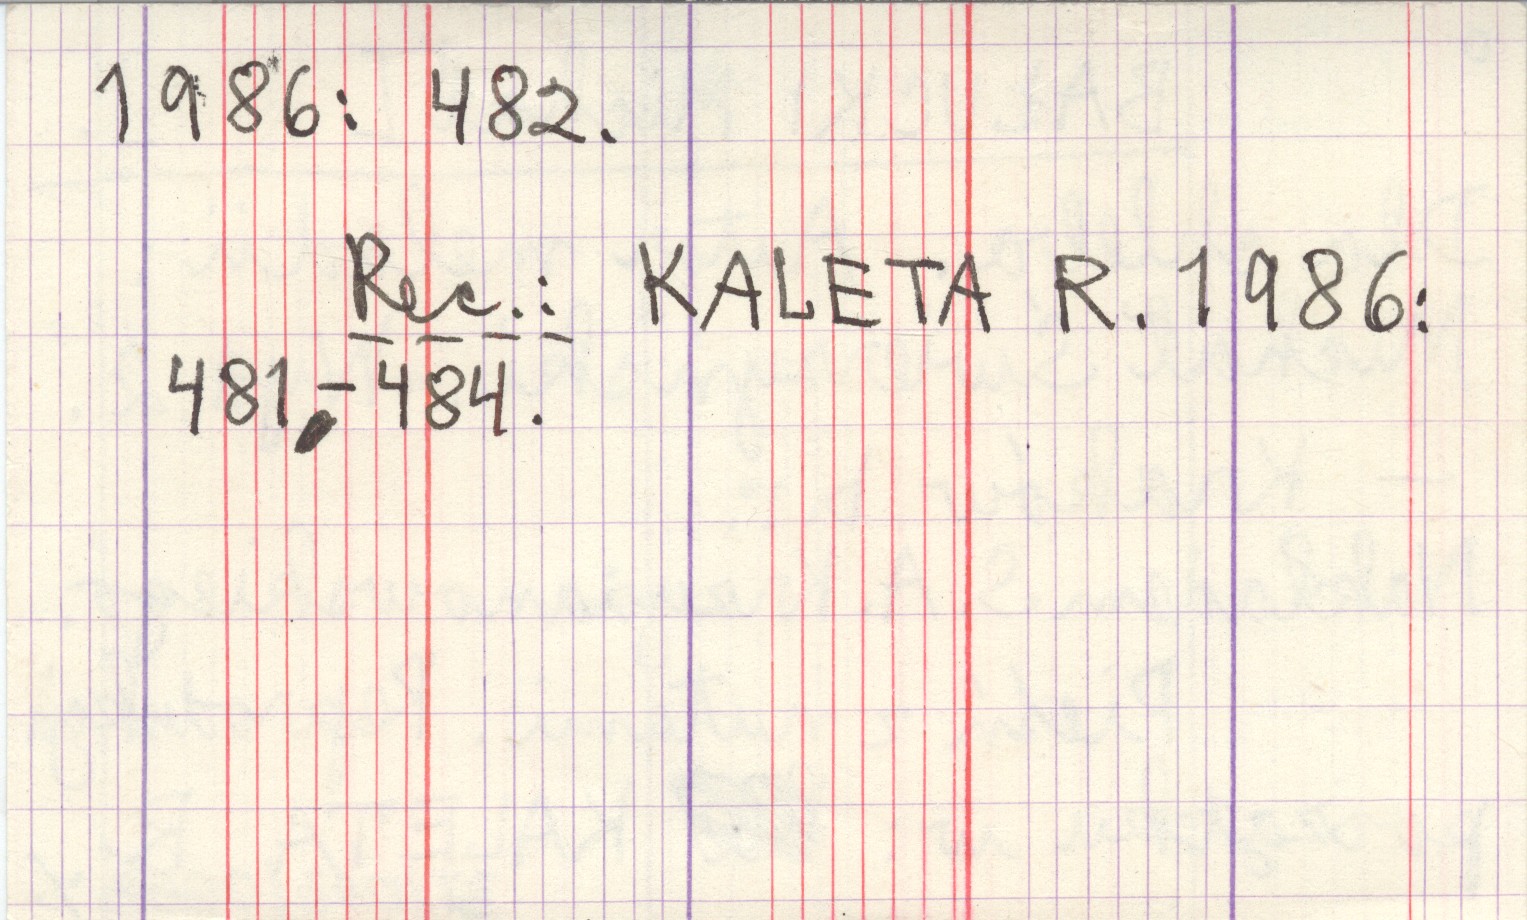 1986: 482.
Rec.: KALETA R. 1986:
481,-484.